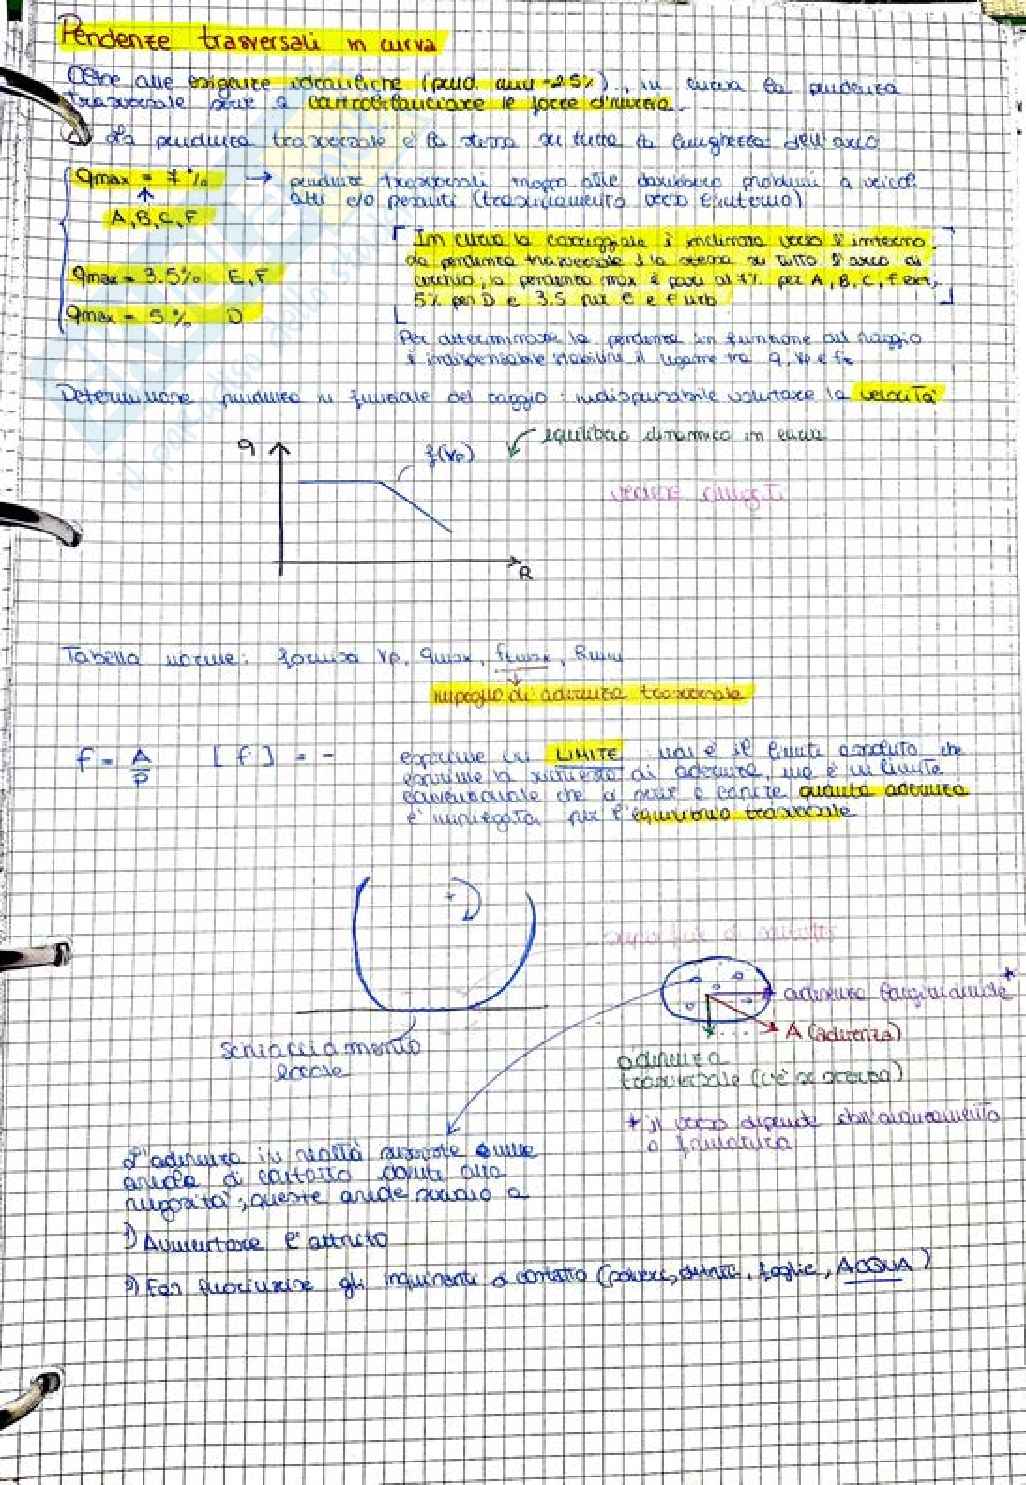 Pendenze trasversali in curva
Oltre alle esigenze idrauliche (pend. min = 2.5%), in curva la pendenza
trasversale serve a controbilanciare le forze d'inerzia.
La pendenza trasversale è la stessa su tutta la lunghezza dell'arco
qmax = 7% → pendenze trasversali maggiori darebbero problemi a veicoli
↑ alti e/o pesanti (trascinamento verso l'interno)
A, B, C, F
In curva la carreggiata è inclinata verso l'interno.
La pendenza trasversale è la stessa su tutto l'arco di
cerchio, la pendenza max è pari al 7% per A, B, C, F extr,
5% per D e 3.5 per E e F urb
qmax = 3.5% E, F
qmax = 5% D
Per determinare la pendenza in funzione del raggio
è indispensabile stabilire il legame tra q, Vp e ft
Determinare pendenza in funzione del raggio: indispensabile valutare la velocità
equilibrio dinamico in curva
q
f(Vp)
R
Tabella norme: fornisce Vp, qmax, ftmax, Rmin
impegno di aderenza trasversale
f = A/P [f] = -
esprime un LIMITE: non è il limite assoluto che
esprime di aderenza, ma è un limite
convenzionale che ci serve a capire quanta aderenza
è impiegata per l'equilibrio trasversale
+
schiacciamento
locale
superficie di contatto
aderenza longitudinale*
A (aderenza)
aderenza
trasversale (c'è se sterza)
* il verso dipende dall'avanzamento
o frenatura
L'aderenza in realtà sulle
areole di contatto dovute alla
rugosità; queste areole servono a
1) Aumentare l'attrito
2) Far fuoriuscire gli inquinanti a contatto (polvere, detriti, foglie, ACQUA)